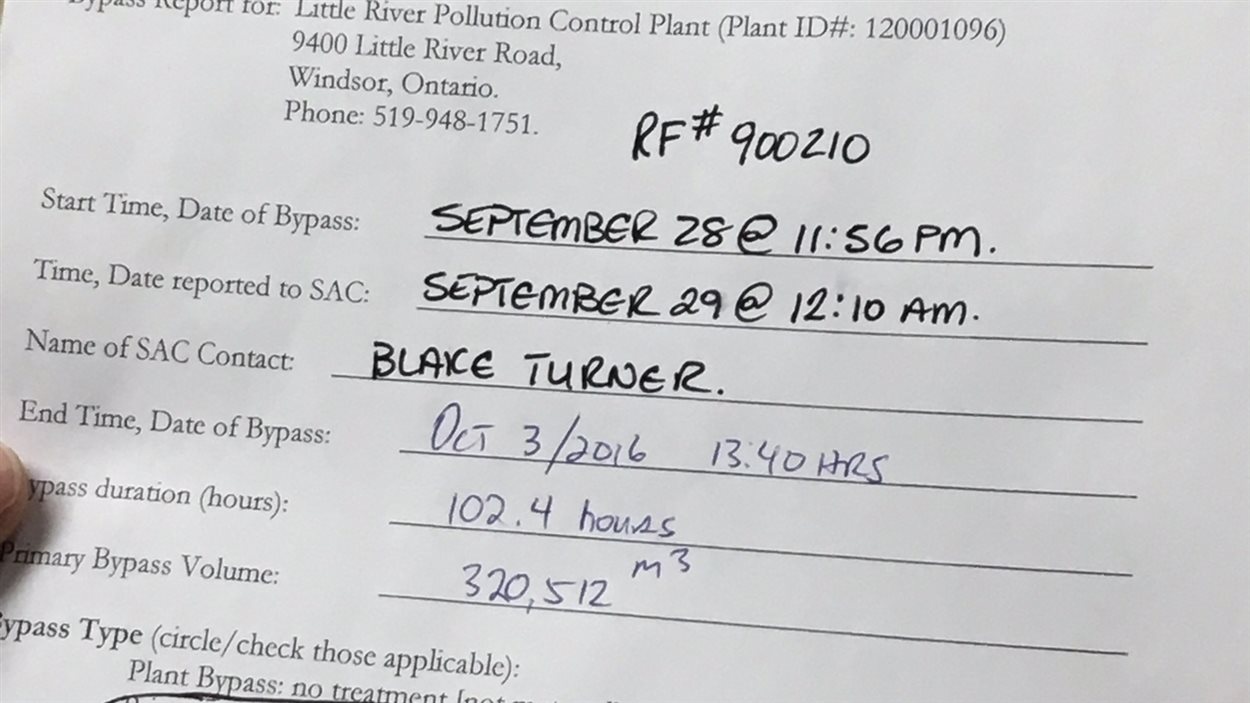 Bypass Report for: Little River Pollution Control Plant (Plant ID#: 120001096)
9400 Little River Road,
Windsor, Ontario.
Phone: 519-948-1751.
RF# 900210
Start Time, Date of Bypass: SEPTEMBER 28 @ 11:56 PM.
Time, Date reported to SAC: SEPTEMBER 29 @ 12:10 AM.
Name of SAC Contact: BLAKE TURNER.
End Time, Date of Bypass: OCT 3/2016 13:40 HRS
ypass duration (hours): 102.4 hours
Primary Bypass Volume: 320,512 m³
ypass Type (circle/check those applicable):
Plant Bypass: no treatment [not